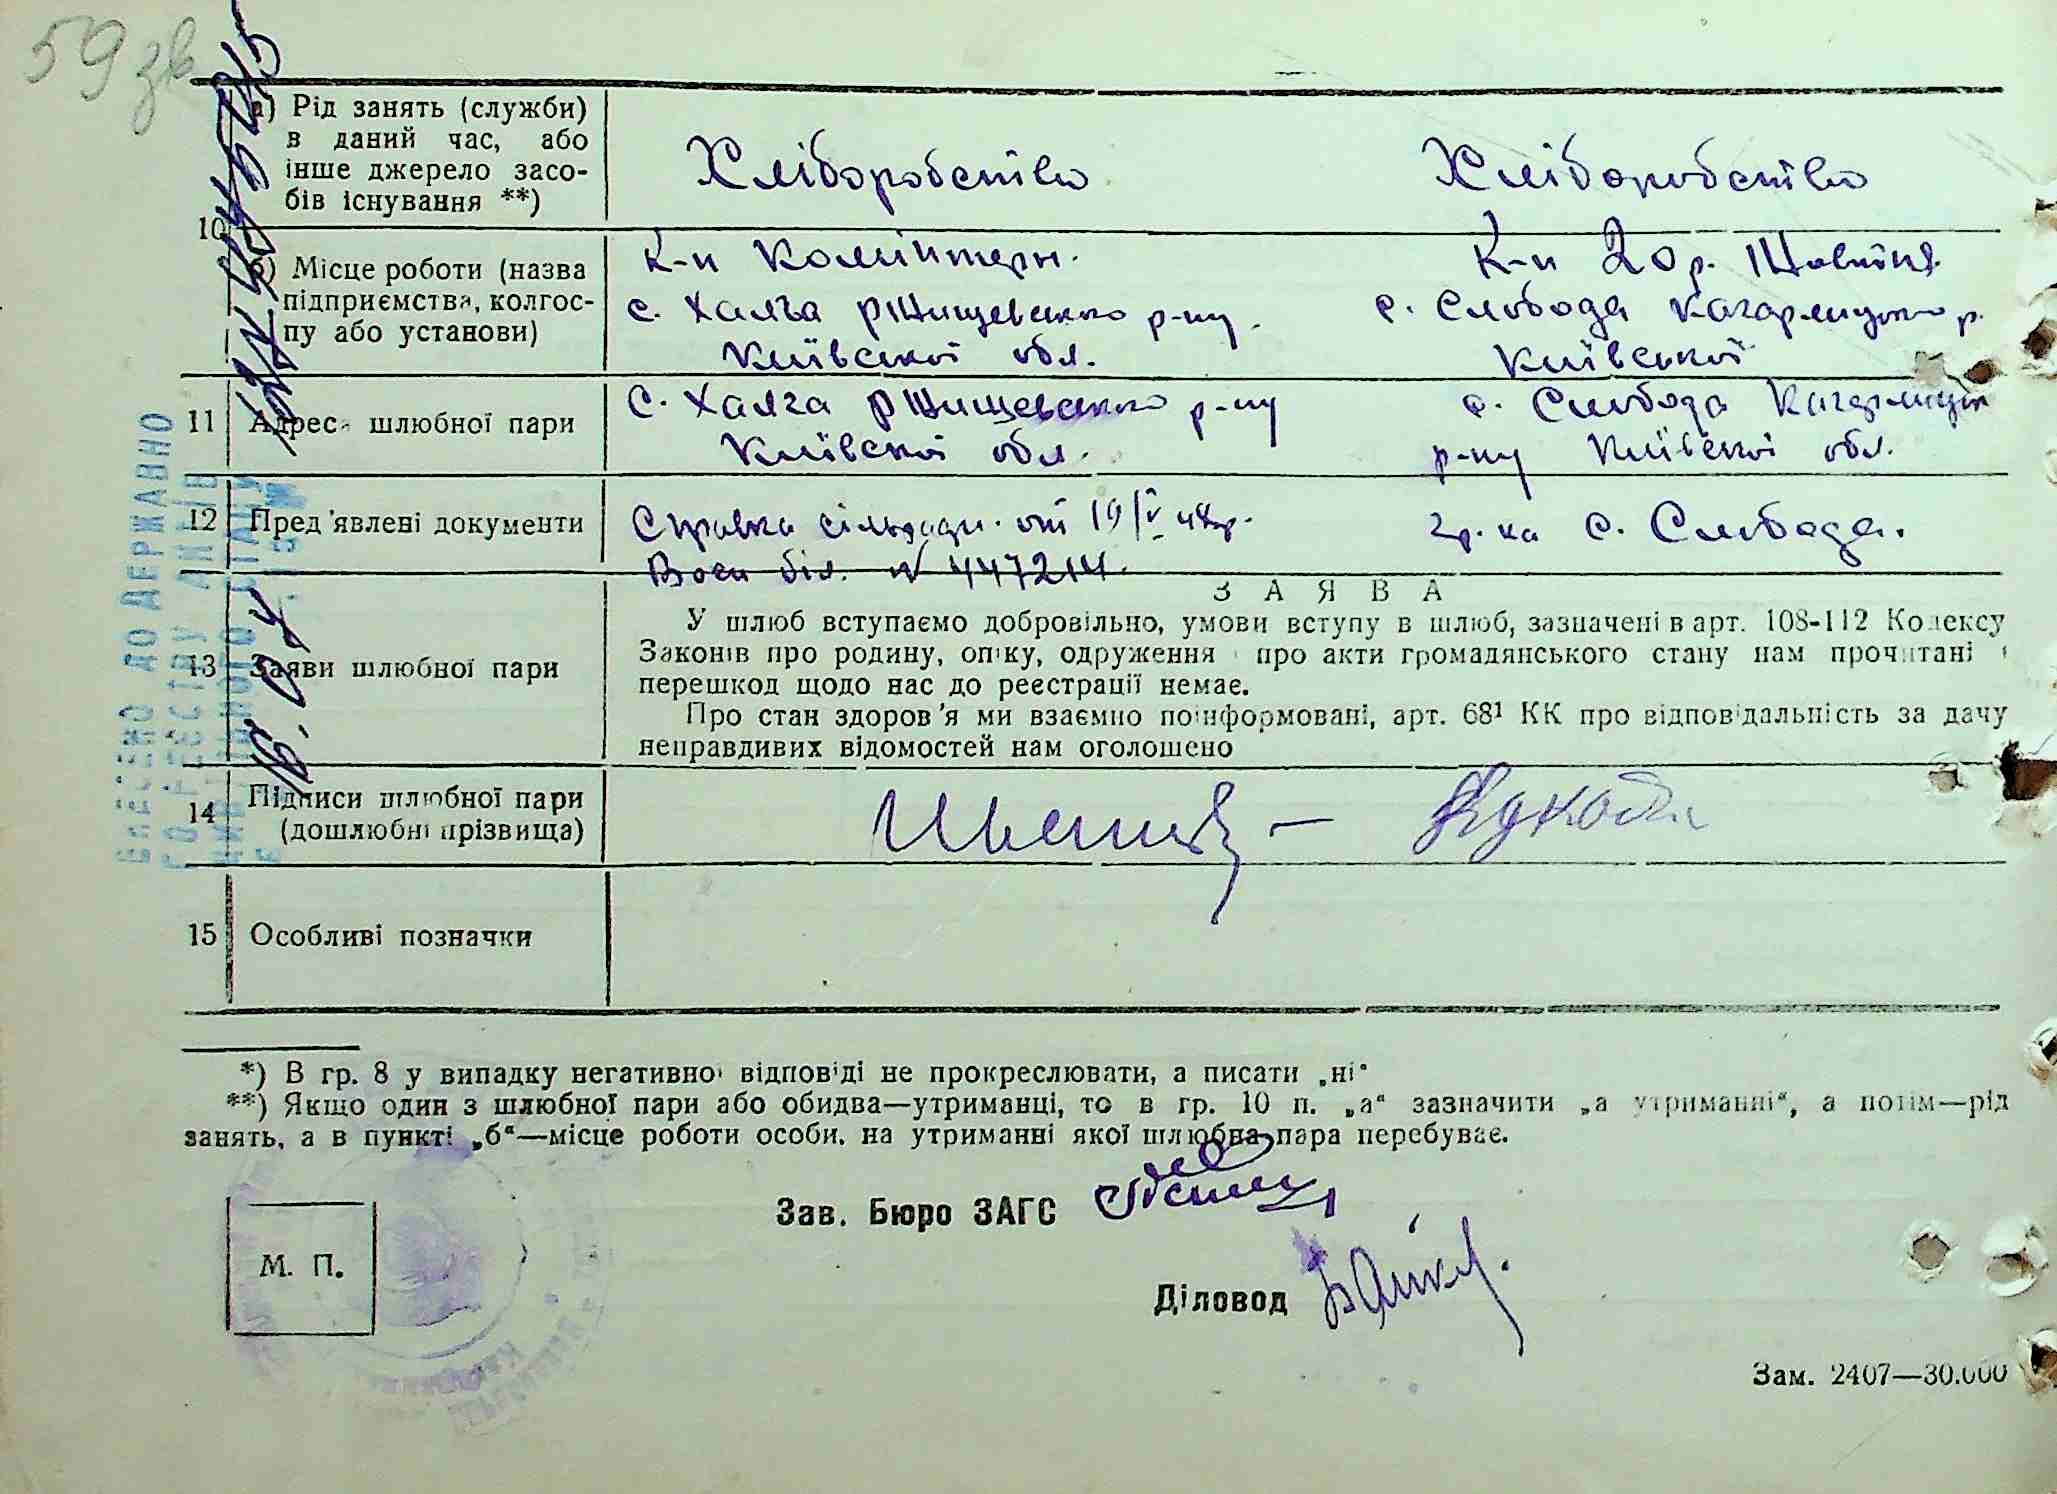 59 зв
а) Рід занять (служби)
в даний час, або
інше джерело засо-
бів існування **)
Хліборобство
Хліборобство
10
б) Місце роботи (назва
підприємства, колгос-
пу або установи)
К-п Комінтерн.
с. Халча Ржищевсько р-ну.
Київської обл.
К-п 20 р. Жовтня.
с. Слобода Кагарлицько р.
Київської
11
Адреса шлюбної пари
с. Халча Ржищевсько р-ну
Київської обл.
с. Слобода Кагарлицьк
р-ну Київської обл.
12
Пред'явлені документи
Справка сільради. от 19/V 48р.
Воен біл. № 447214.
с. Слобода.
З А Я В А
13
Заяви шлюбної пари
У шлюб вступаємо добровільно, умови вступу в шлюб, зазначені в арт. 108-112 Кодексу
Законів про родину, опіку, одруження і про акти громадянського стану нам прочитані і
перешкод щодо нас до реєстрації немає.
Про стан здоров'я ми взаємно поінформовані, арт. 68¹ КК про відповідальність за дачу
неправдивих відомостей нам оголошено
14
Підписи шлюбної пари
(дошлюбні прізвища)
15
Особливі позначки
*) В гр. 8 у випадку негативної відповіді не прокреслювати, а писати „ні“
**) Якщо один з шлюбної пари або обидва—утриманці, то в гр. 10 п. „а“ зазначити „а утриманні“, а потім—рід
занять, а в пункті „б“—місце роботи особи, на утриманні якої шлюбна пара перебуває.
М. П.
Зав. Бюро ЗАГС
Діловод
Зам. 2407—30.000
ВНЕСЕНО ДО ДЕРЖАВНО
ГО РЕЄСТРУ АКТІВ
ЦИВІЛЬНОГО СТАНУ